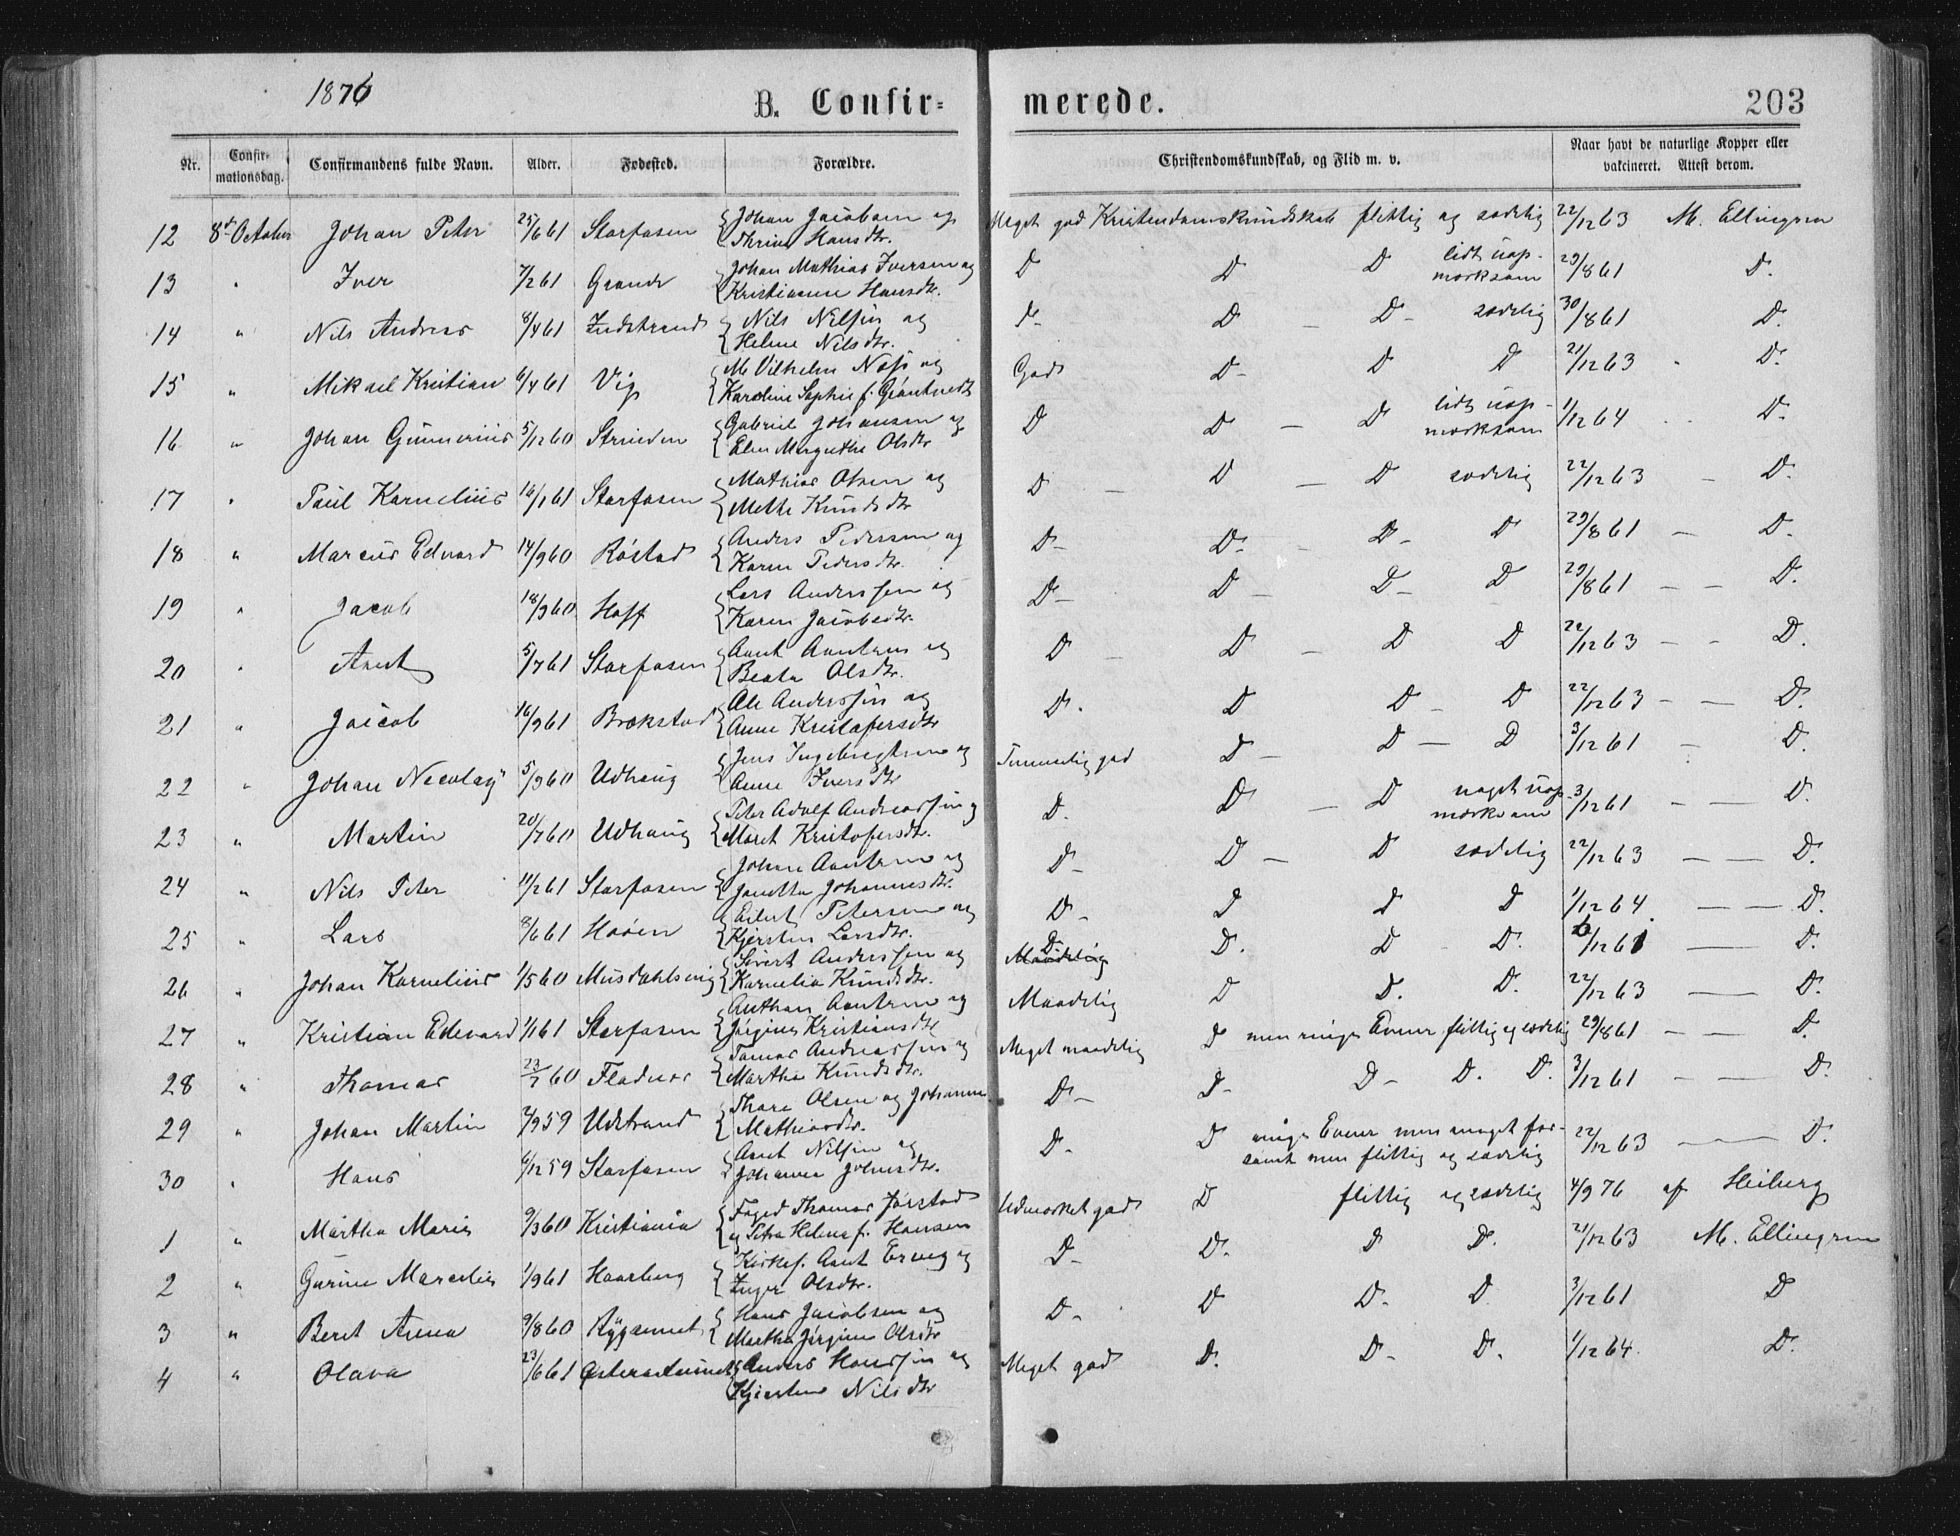 1876
B. Confir-
merede.
203
Nr.
Confir-
mationsdag.
Confirmandens fulde Navn.
Alder.
Fødested.
Forældre.
Christendomskundskab, og Flid m. v.
Naar havt de naturlige Kopper eller
vaccineret. Attest derom.
12 8de October Johan Peter 25/6 61 Storfosen Johan Jacobsen og
Thrine Hansdtr. Meget god Kristendomskundskab flittig og sædelig 22/12 63 M. Ellingsen
13 " Iver 7/2 61 Grande Johan Mathias Iversen og
Kristianne Hansdtr. D D D lidt uop-
mærksom 29/8 61 D.
14 " Nils Andreas 8/4 61 Indstrand Nils Nilsen og
Helene Nilsdtr. D- D - D- sædelig 30/8 61 D.
15 " Mikael Kristian 6/4 61 Vig M Vilhelm Næss og
Karoline Sophie f. God D- D D 21/12 63 - D.
16 " Johan Gunnerius 5/12 60 Strinden Gabriel Johansen og
Elen Margrethe Olsdtr D D - D lidt uop-
mærksom 1/12 64 D.
17 " Paul Kornelius 16/1 61 Storfosen Mathias Olsen og
Methe Knudsdtr D - D - D sædelig 22/12 63 - D.
18 " Marcus Edvard 14/9 60 Røstad Anders Pedersen og
Karen Pedersdtr. D- D- - D- D 29/8 61 - D.
19 " Jacob 18/9 60 Hoff Lars Anderssen og
Karen Jacobsdtr. D- D - D- D 29/8 61 - - D.
20 " Arnt 5/7 61 Storfosen Arnt Arntsen og
Beata Olsdtr. D - D - D D 22/12 63 - - D.
21 " Jacob 16/9 61 Brækstad Ole Anderssen og
Anne Kristofersdtr D. D D - D 22/12 63 - - D.
22 " Johan Nicolay 5/9 60 Udhaug Jens Ingebregtsen og
Anne Iversdtr Temmelig god D - D - D 3/12 61 - D.
23 " Martin 20/7 60 Udhaug Peter Adolf Andreassen og
Maret Kristofersdtr. D. D - D noget uop-
mærksom 3/12 61 - - D.
24 " Nils Peter 11/2 61 Storfosen Johan Arntsen og
Janetta Johannesdtr. D- D - D sædelig 22/12 63 - - D.
25 " Lars 8/6 61 Hoøen Eilert Petersen og
Kjersten Larsdtr. D- D D D 1/12 64. - - D.
26 " Johan Kornelius 1/5 60 Musdahlsvig Sivert Anderssen og
Kornelia Knudsdtr. D
Maadelig D. D - D. /12 61 - D.
27 " Kristian Edevard 1/1 61 Storfosen Anthon Arntsen og
Jørgine Kristiansdtr Maadelig D D. D. 22/12 63 - D.
28 " Thomas 23/7 60 Fladnes Tomas Andreassen og
Martha Knudsdtr. Meget maadelig D men ringe Evner flittig og sædelig 29/8 61 - - D
29 " Johan Martin 2/9 59 Udstrand Thore Olsen og Johanna
Mathiasdtr. D- D- D- D. D. 3/12 61 - - D.
30 " Hans 6/12 59 Storfosen Arnt Nilsen og
Johanna Johnsdtr. D- D ringe Evner men meget for-
sømt men flittig og sædelig 22/12 63 - D.
1 " Martha Marie 9/3 60 Kristiania Foged Thomas Jørstad
og Petra Helene f. Hansen Udmærket god D flittig og sædelig 4/9 76 af Heiberg
2 " Gurine Marcelie 1/9 61 Haarberg Kirkes. Arnt Erveg og
Inger Olsdtr. D- D- D D. 21/12 63 M. Ellingsen
3 " Beret Anna 9/8 60 Rygsemet Hans Jacobsen og
Martha Jørgine Olsdtr D- D D- D 3/12 61 D
4 " Olava 23/6 61 Anders Hanssen og
Kjerstine Nilsdtr Meget god D. D- D. 1/12 64 D.